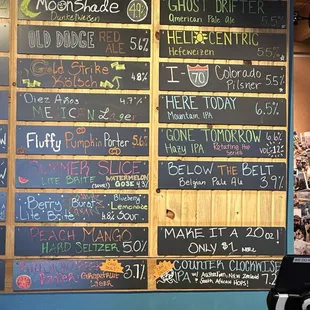 MOONSHADE
Dunkelweizen 4.9%
OLD DODGE RED ALE 5.6%
Gold Strike
Kölsch 4.8%
Diez Años 4.7%
MEXICAN Lager
Fluffy Pumpkin Porter 5.6%
SUMMER SLICE
LITE BRITE WATERMELON
GOSE 4.3%
Berry Burst Blueberry
Lite Brite Lemonade
4.8% Sour
PEACH MANGO
HARD SELTZER 5.0%
GRAPEFRUIT
BEER 3.7%
GHOST DRIFTER
American Pale Ale 5.5%
HELIOCENTRIC
Hefeweizen 5.5%
I 70 Colorado
Pilsner 5.5%
HERE TODAY
Mountain IPA 6.5%
GONE TOMORROW 6.6%
Hazy IPA Rotating the
series VOL 12
BELOW THE BELT
Belgian Pale Ale 3.9%
MAKE IT A 20oz!
ONLY $1
COUNTER CLOCKWISE
IPA w/ Australian, New Zealand
South African Hops! 7.2